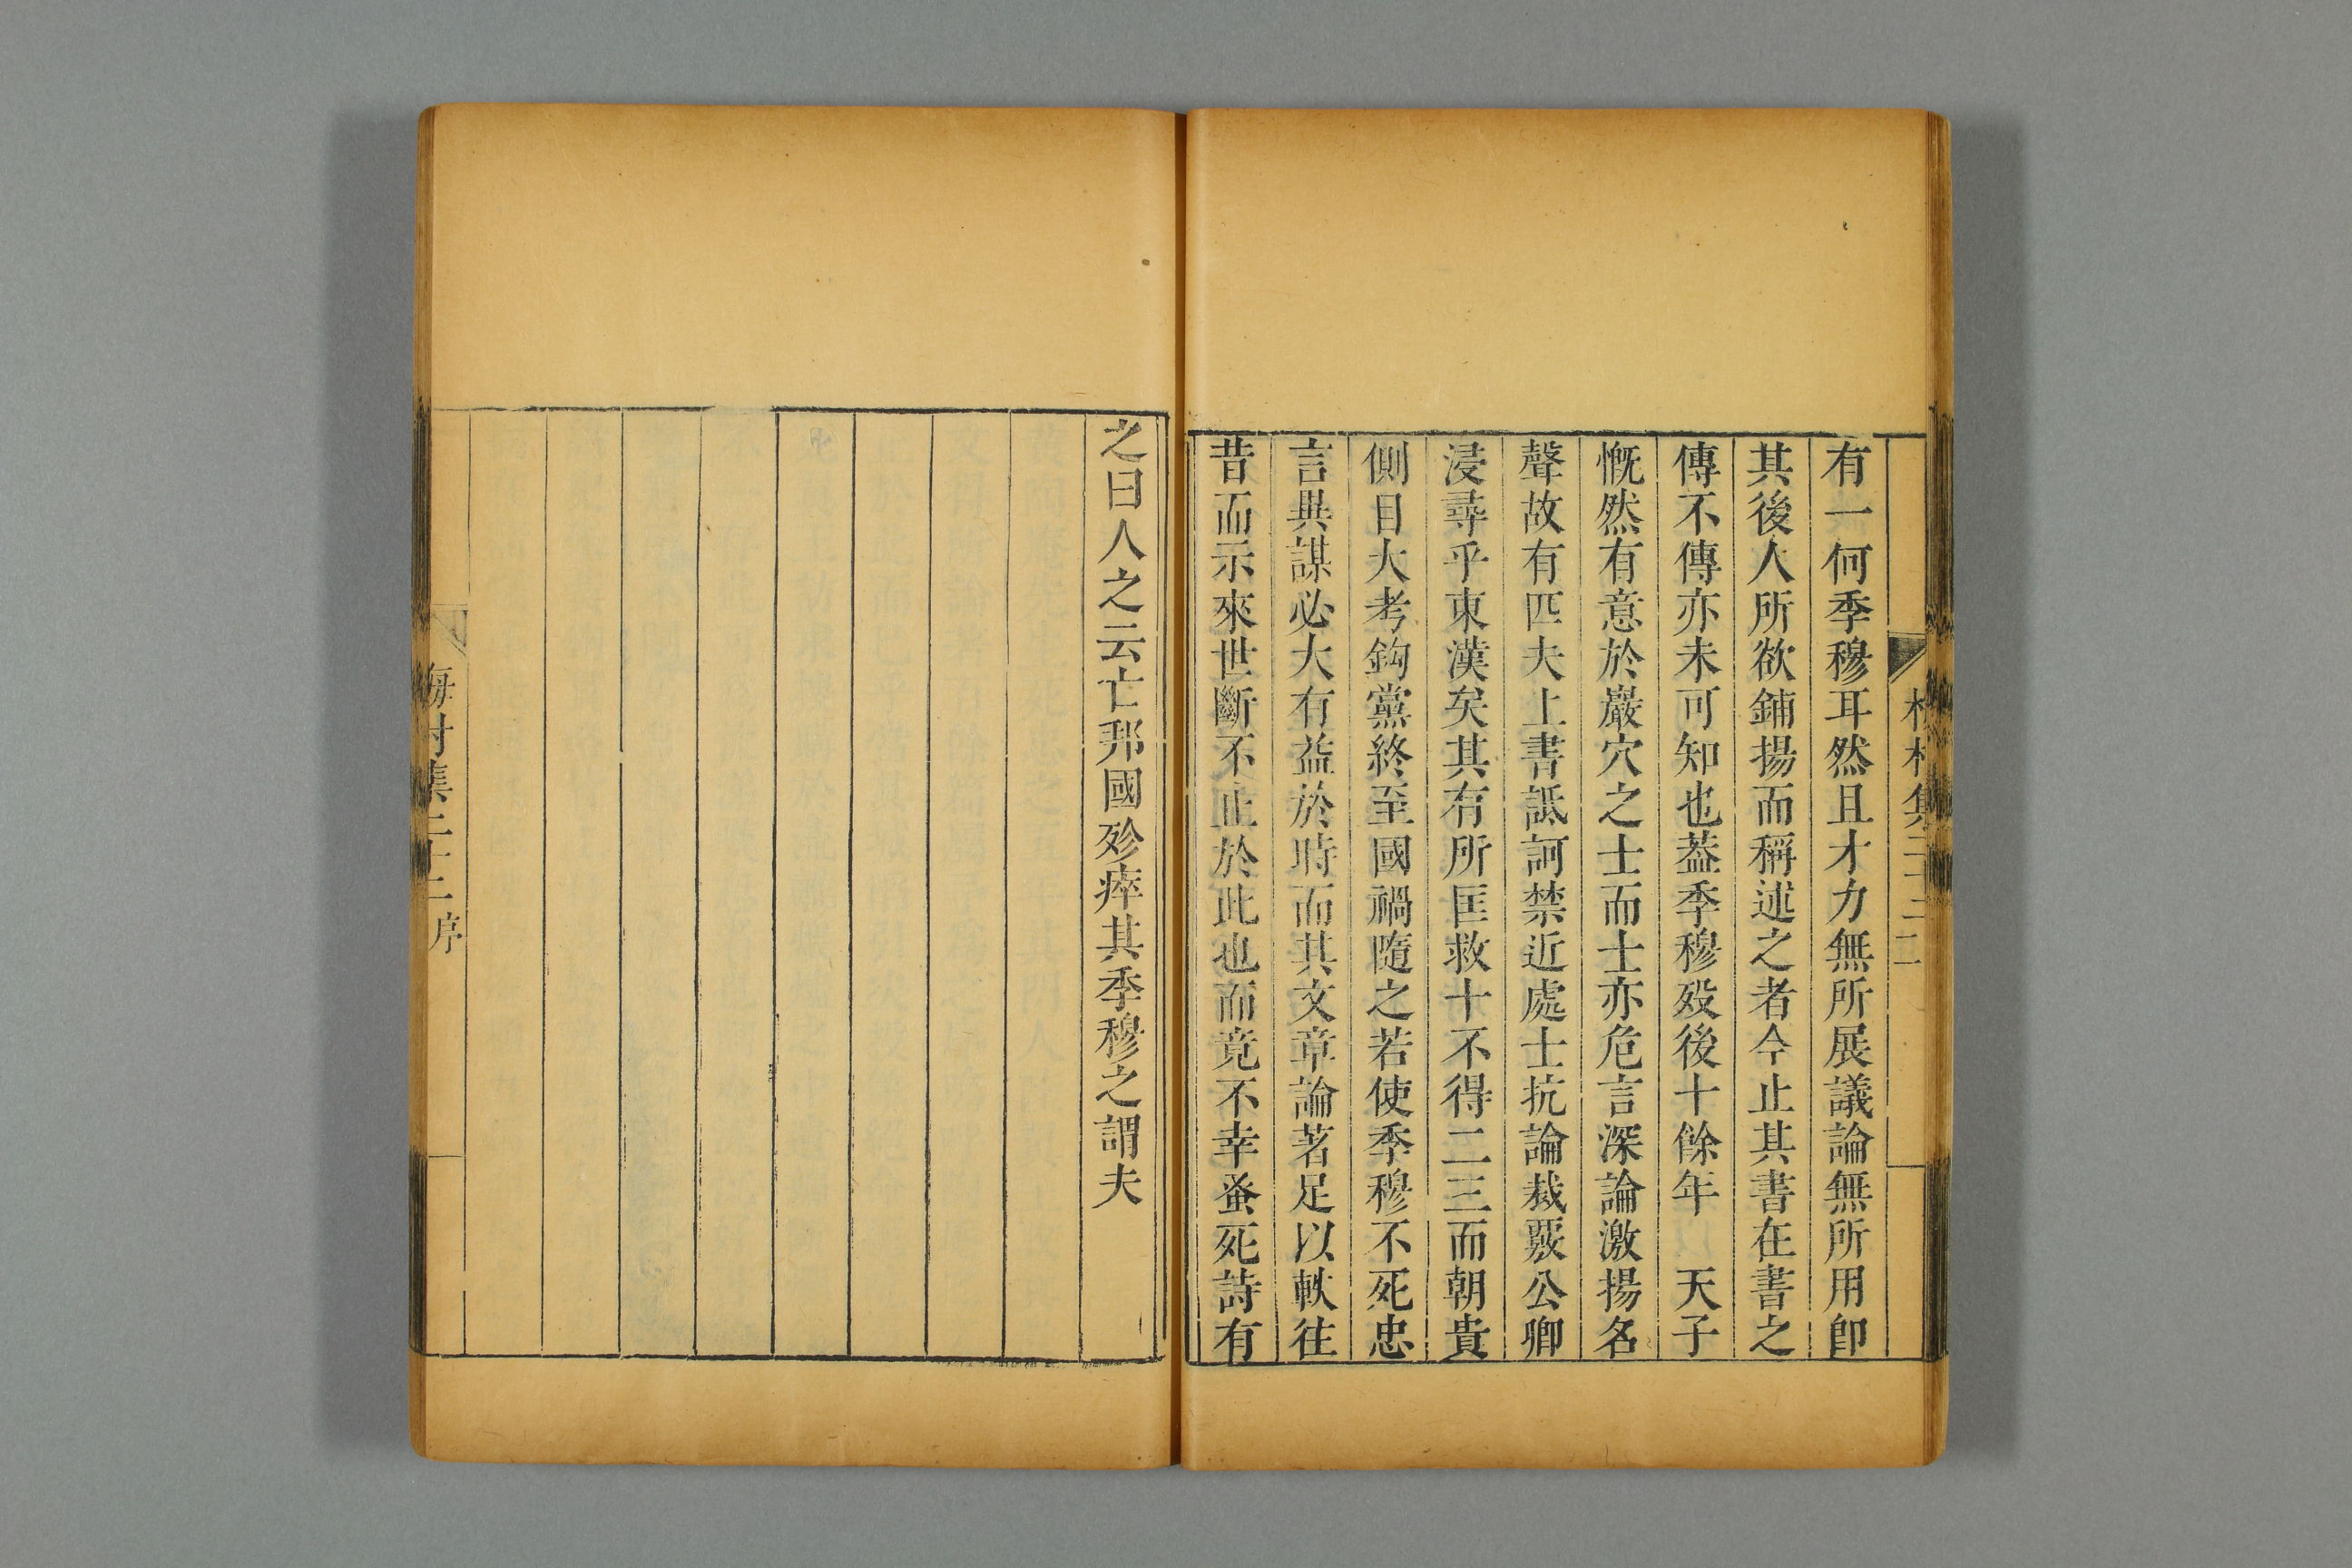 有一何季穆耳然且才力無所展議論無所用卽
其後人所欲鋪揚而稱述之者今止其書在書之
傳不傳亦未可知也葢季穆歿後十餘年　天子
慨然有意於巖穴之士而士亦危言深論激揚名
聲故有匹夫上書詆訶禁近處士抗論裁覈公卿
浸尋乎東漢矣其有所匡救十不得二三而朝貴
側目大考鈎黨終至國禍隨之若使季穆不死忠
言與謀必大有益於時而其文章論著足以軼往
昔而示來世斷不止於此也而竟不幸蚤死詩有
之曰人之云亡邦國殄瘁其季穆之謂夫
序